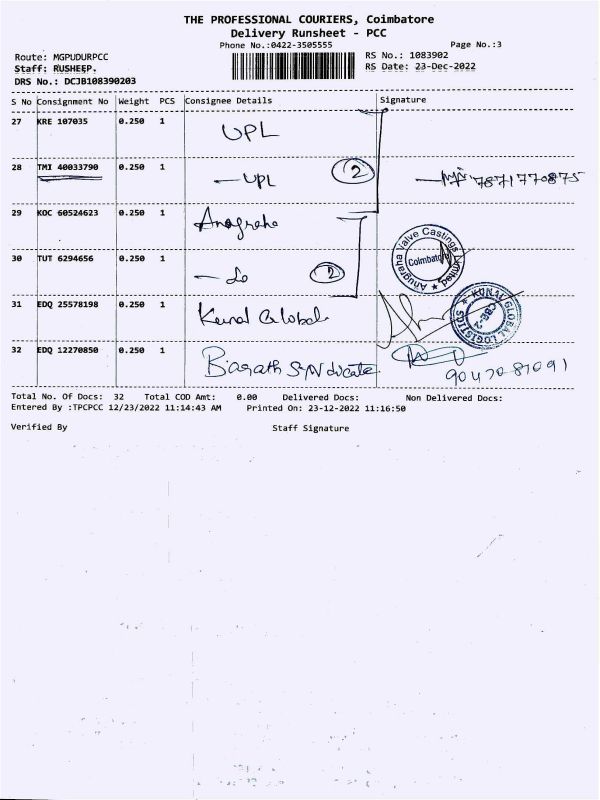 THE PROFESSIONAL COURIERS, Coimbatore
Delivery Runsheet - PCC
Phone No.:0422-3505555 Page No.:3
Route: MGPUDURPCC RS No.: 1083902
Staff: RUSHEEP. RS Date: 23-Dec-2022
DRS No.: DCJB108390203
S No Consignment No Weight PCS Consignee Details Signature
27 KRE 107035 0.250 1 UPL
28 TMI 40033790 0.250 1 - UPL 2 7871770875
29 KOC 60524623 0.250 1
Anugraha Valve Castings Limited
Coimbatore
30 TUT 6294656 0.250 1 2
31 EDQ 25578198 0.250 1 Kunal Global
KUNAL GLOBAL LOGISTICS
CBE-2
32 EDQ 12270850 0.250 1 Barath Syndicate
9047087091
Total No. Of Docs: 32 Total COD Amt: 0.00 Delivered Docs: Non Delivered Docs:
Entered By :TPCPCC 12/23/2022 11:14:43 AM Printed On: 23-12-2022 11:16:50
Verified By Staff Signature